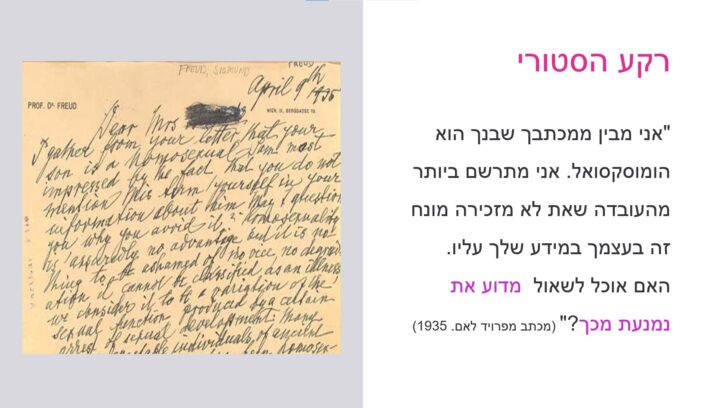 רקע הסטורי
"אני מבין ממכתבך שבנך הוא
הומוסקסואל. אני מתרשם ביותר
מהעובדה שאת לא מזכירה מונח
זה בעצמך במידע שלך עליו.
האם אוכל לשאול  מדוע את
נמנעת מכך?" (מכתב מפרויד לאם. 1935)
FREUD, SIGMUND
FREUD
April 9th 1935
PROF. DR. FREUD
WIEN, IX., BERGGASSE 19.
Dear Mrs
I gather from your letter that your
son is a homosexual. I am most
impressed by the fact that you do not
mention this term yourself in your
information about him. May I question
you why you avoid it? Homosexuality
is assuredly no advantage but it is no-
thing to be ashamed of, no vice, no degrad-
ation, it cannot be classified as an illness,
we consider it to be a variation of the
sexual function produced by a certain
arrest of sexual development. Many
individuals of ancient